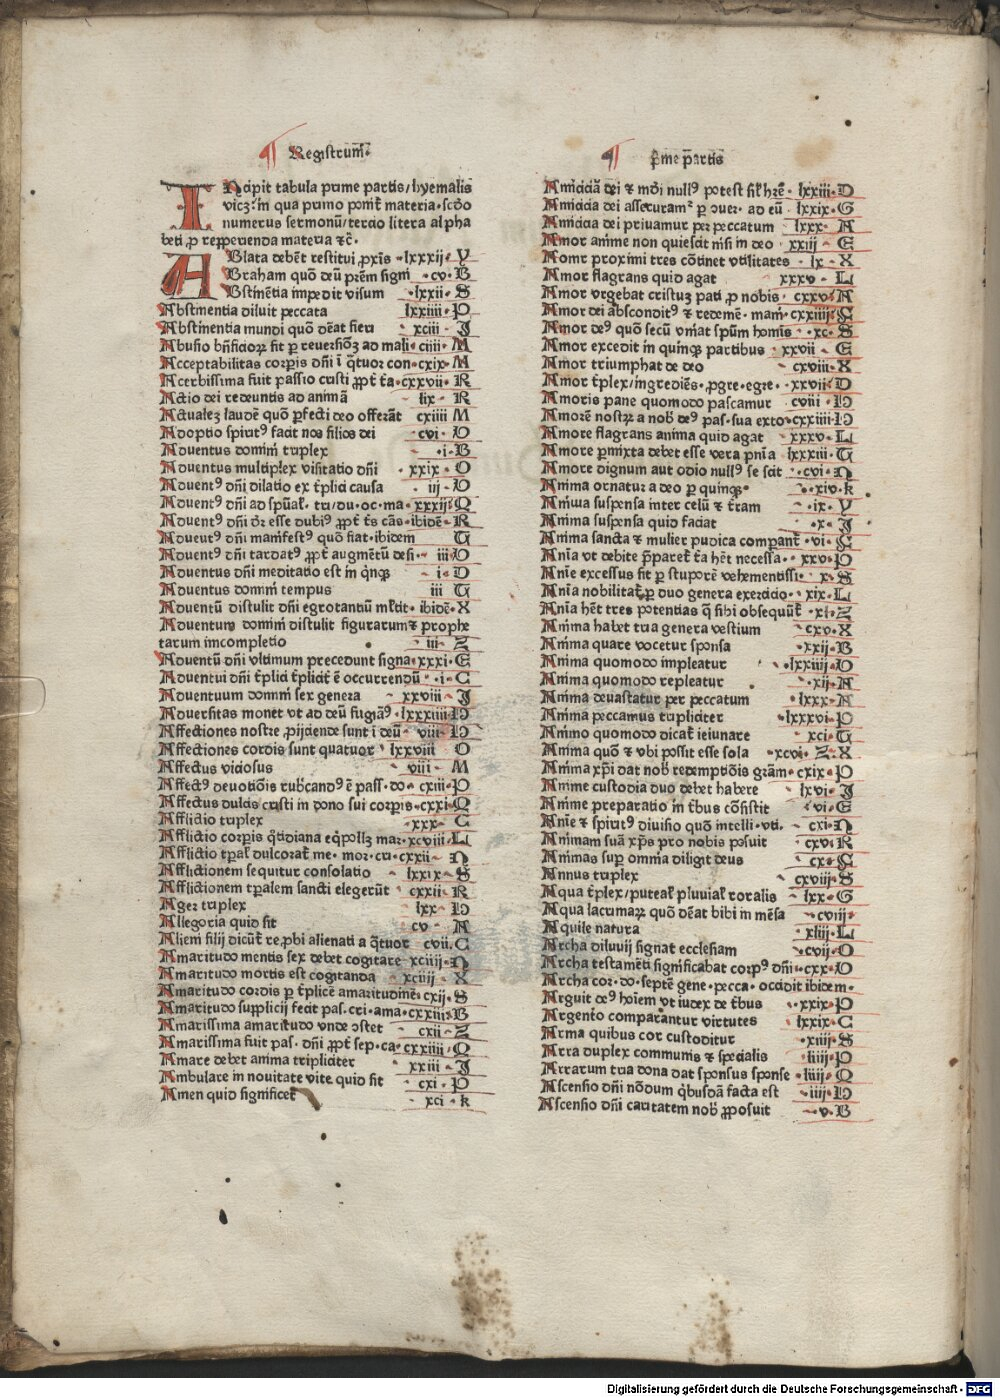 ¶ Registrum.
INcipit tabula prime partis/hyemalis
vicz. in qua primo ponit̄ materia. scđo
numerus sermonū/tercio litera alpha
beti ꝓ repperienda materia ꝛc̄.
ABlata debēt restitui ꝓxīs lxxxij V
Braham quō deū prēm signi cv. B
Bstinētia impedit visum lxxii. S
Abstinentia diluit peccata lxxiiii. P
Abstinentia mundi quō dēat fieri xciii. J
Abusio bn̄ficioꝝ fit ꝑ reuersiōꝫ ad mali. ciiii. M
Acceptabilitas corpis dn̄i ī q̄tuor con. cxix. M
Acerbissima fuit passio cristi ꝓpt̄ t̄a. cxxvii. R
Actio dei redeuntis ad animā lix. R
Actualeꝫ laudē quō ꝑfecti deo offerāt cxiiii M
Adoptio spirit⁹ facit nos filios dei cvi. V
Aduentus domini triplex .i. B
Aduentus multiplex visitatio dn̄i xxix. O
Aduent⁹ dn̄i dilatio ex t̄plici causa iij. V
Aduent⁹ dn̄i ad spūal. tri/du. oc. ma. xxxij. Q
Aduent⁹ dn̄i dr̄ esse dubi⁹ ꝓpt̄ t̄s cās. ibidē. R
Aduent⁹ dn̄i manifest⁹ quō fiat. ibidem T
Aduent⁹ dn̄i tardat⁹ ꝓpt̄ augmētū desi. iii. V
Aduentus dn̄i meditatio est in q̄nqꝫ .i. D
Aduentus domini tempus iii T
Aduentū distulit dn̄i egrotantiū ml̄tit. ibidē. X
Aduentum domini distulit figurarumꝫ prophe
tarum imcompletio iii. Z
Aduentū dn̄i vltimum precedunt signa. xxxi. E
Aduentui dn̄i t̄plici t̄plicit̄ ē occurrendū .i. C
Aduentuum domini sex genera xxviii. J
Aduersitas monet vt ad deū fugiā⁹. lxxxiiii. H
Affectiones nostre ꝓijciende sunt ī deū viii. H
Affectiones cordis sunt quatuor lxxviii O
Affectus viciosus viii. M
Affect⁹ deuotiōis rubicand⁹ ē pass. do. cxiii. P
Affectus dulcis cristi in dono sui corpis. cxxi. Q
Afflictio triplex xxx. C
Afflictio corpis q̄tidiana eq̄pollꝫ mar. xcviii. L
Afflictio tp̄al̄ dulcorat̄ me. mor. cri. cxxii. N
Afflictionem sequitur consolatio lxxix. S
Afflictionem tp̄alem sancti elegerūt cxxii. R
Ager triplex lxx. H
Allegoria quid sit cv. A
Alieni filij dicūt̄ reꝓbi alienati a q̄tuor cvii. C
Amaritudo mentis sex debet cogitare xciiij. N
Amaritudo mortis est cogitanda xciiij. X
Amaritudo cordis ꝑ t̄plicē amaritudinē. cxij. S
Amaritudo supplicij fecit pas. cri. ama. cxxiii. B
Amarissima amaritudo vnde ↄstet cxii. Z
Amarissima fuit pas. dn̄i ꝓpt̄ sep. ca. cxxiiii. Q
Amare debet anima tripliciter xxiii. J
Ambulare in nouitate vite quid sit cxi. P
Amen quid significet xci. k
¶ p̄me p̄artis
Amiciciā dei ⁊ mūdi null⁹ potest sil̄ hr̄e. lxxiii. D
Amicicia dei assecuram² ꝑ ↄuer. ad eū lxxix. G
Amicicia dei priuamur per peccatum lxxx. A
Amor anime non quiescit nisi in deo xxiij. E
Aomr proximi tres cōtinet vtilitates lx. X
Amor flagrans quid agat xxxv. L
Amor vrgebat cristuꝫ pati ꝓ nobis. cxxv. A
Amor dei abscondit⁹ ꝫ redemē. mani. cxxiiij. C
Amor de⁹ quō secū vniat spūm homīs xc. S
Amor excedit in quinqꝫ partibus xxvii. E
Amor triumphat de deo cxviii. X
Amor t̄plex/ingrediēs. ꝓgre. egre. xxvii. D
Amoris pane quomodo pascamur cviii. H
Amorē nostꝝ a nob̄ de⁹ pas. sua exto. cxxiiii. H
Amore flagrans anima quid agat xxxv. L
Amore ꝑmixta debet esse vera pn̄ia lxxxiii. T
Amore dignum aut odio null⁹ se scit cvi. N
Anima ornatur a deo ꝑ quinqꝫ xiv. k
Anima suspensa inter celū ⁊ t̄ram ix. Y
Anima suspensa quid faciat x. J
Anima sancta ⁊ mulier pudica comparant̄ vi. C
Aīa vt debite p̄paret̄ t̄a hēt necessa. xxv. P
Anīe excessus fit ꝑ stuporē vehementissi. x. S
Anīa nobilitat̄ ꝑ duo genera exercicio. xix. L
Anīa hēt tres potentias q̄ sibi obsequūt̄ xi. Z
Anima habet tria genera vestium cxv. X
Anima quare vocetur sponsa xxij. B
Anima quomodo impleatur lxxiiij. O
Anima quomodo repleatur xij. A
Anima deuastatur per peccatum lxxx. A
Anima peccamus tripliciter lxxxvi. P
Animo quomodo dicat̄ ieiunare xci. T
Anima quō ⁊ vbi possit esse sola xcvi. Z. X
Anima xp̄i dat nob̄ redemptiōis grām. cxix. P
Anime custodia duo debet habere lxvi. J
Anime preparatio in t̄bus cōsistit vi. E
Anīe ⁊ spirit⁹ diuisio quō intelli. vti. cxi. N
Animam suā xp̄s pro nobis posuit cxv. R
Animas super omnia diligit deus cx. C
Annus triplex cxviij. S
Aqua t̄plex/puteal̄ pluuial̄ roralis lxx. G
Aqua lacrimaꝝ quō dēat bibi in mēsa cviij.
Aquile natura xliij. L
Archa diluuij signat ecclesiam cvij. O
Archa testamēti significabat corp⁹ dn̄i. cxx. V
Archa cor. do. septē gene. pecca. occidit ibidem.
Arguit de⁹ hoīem vt iudex de t̄bus xxix. P
Argento comparantur virtutes lxxix. C
Arma quibus cor custoditur xiiij. S
Arra duplex communis ⁊ specialis liiij. P
Arrarum tria dona dat sponsus sponse liiij. Q
Ascensio dn̄i nōdum q̄busdā facta est iiij. H
Ascensio dn̄i caritatem nob̄ ꝓposuit v. B
Digitalisierung gefördert durch die Deutsche Forschungsgemeinschaft - DFG